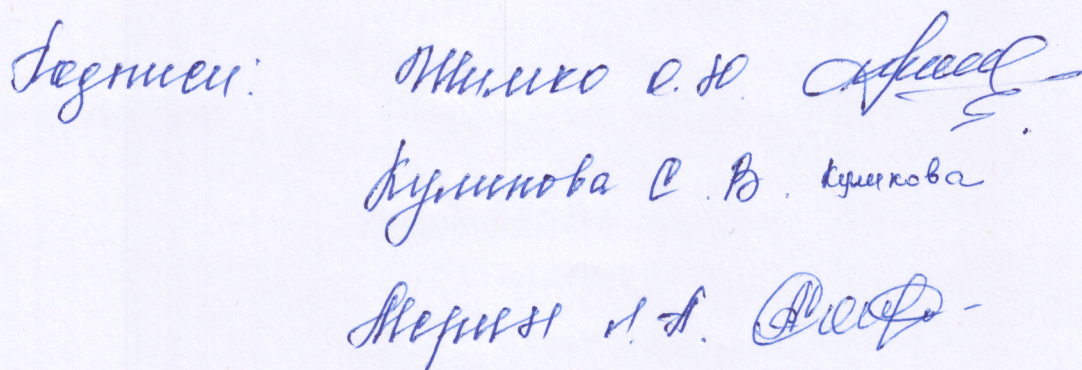 Подписи: Шимко О. Ю.
Куликова С. В. Куликова
Мерин А. А.